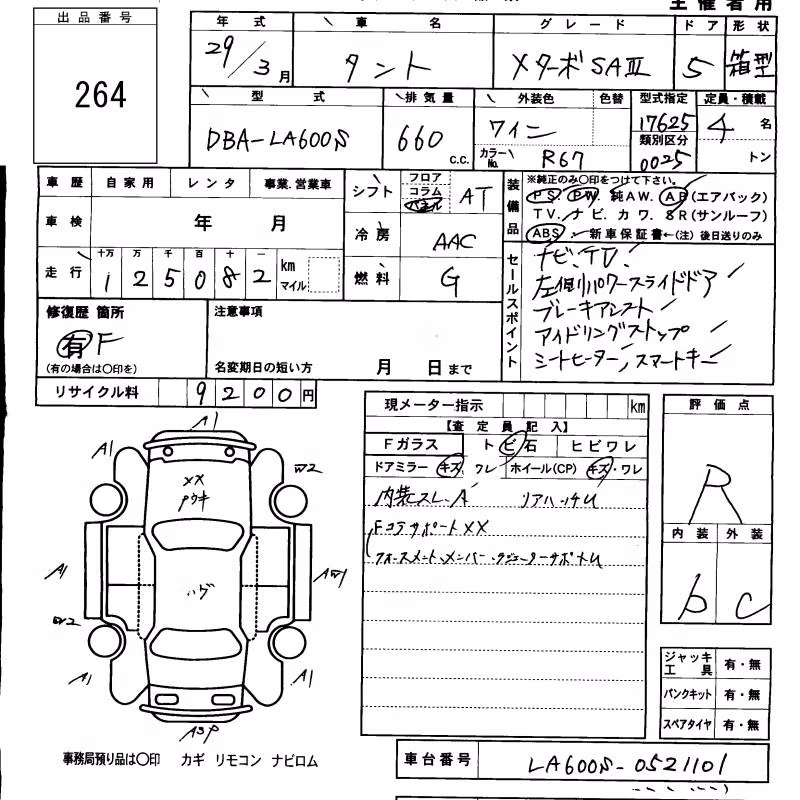 主催者用
出品番号
264
年式 車名 グレード ドア 形状
29/3月 タント Xターボ SAIII 5 箱型
型式 排気量 外装色 色替 型式指定 定員・積載
DBA-LA600S 660 c.c. ワイン 17625 4名
カラーNo. R67 類別区分 0025 トン
車歴 自家用 レンタ 事業.営業車
車検 年 月
走行 十万 万 千 百 十 一
125082 km マイル
シフト フロア コラム パネル AT
冷房 AAC
燃料 G
装備品 ※純正のみ〇印をつけて下さい。
PS. PW. 純AW. AB(エアバック)
TV. ナビ. カワ. SR(サンルーフ)
ABS. 新車保証書←(注)後日送りのみ
セールスポイント
ナビ、TV、
左側パワースライドドア
ブレーキアシスト
アイドリングストップ
シートヒーター, スマートキー
修復歴 箇所
有 F
(有の場合は〇印を)
注意事項
名変期日の短い方 月 日まで
リサイクル料 9200円
現メーター指示 km
【査定員記入】
Fガラス トビ石 ヒビワレ
ドアミラー キズ. ワレ ホイール(CP) キズ・ワレ
内装スレ、A リアハッチU
Fコアサポート XX
評価点
R
内装 外装
b C
A1
A1
W2
XX
ハゲ
A1
AW1
W2
A1
A1
ジャッキ工具 有・無
パンクキット 有・無
スペアタイヤ 有・無
事務局預り品は〇印 カギ リモコン ナビロム
車台番号 LA600S-0521101